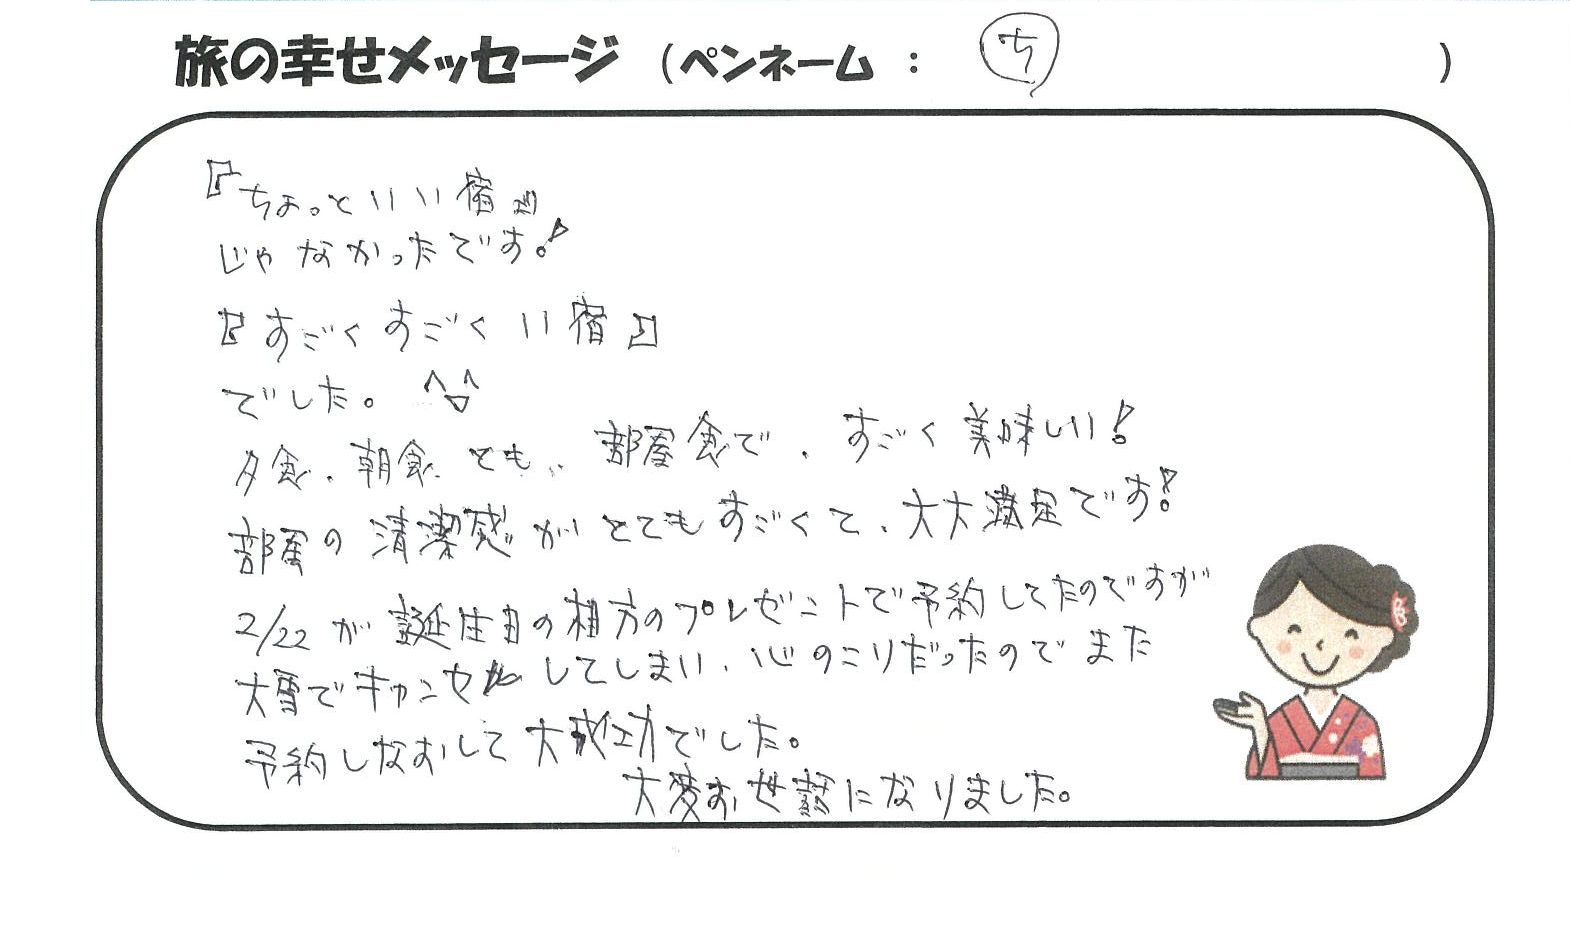 旅の幸せメッセージ (ペンネーム : ち )
『ちょっといい宿』
じゃなかったです!
『すごくすごくいい宿』
でした。^▽^
夕食、朝食とも、部屋食で、すごく美味しい!
部屋の清潔感がとてもすごくて、大大満足です!
2/22が誕生日の相方のプレゼントで予約してたのですが
大雪でキャンセルしてしまい、心のこりだったのでまた
予約しなおして大成功でした。
大変お世話になりました。